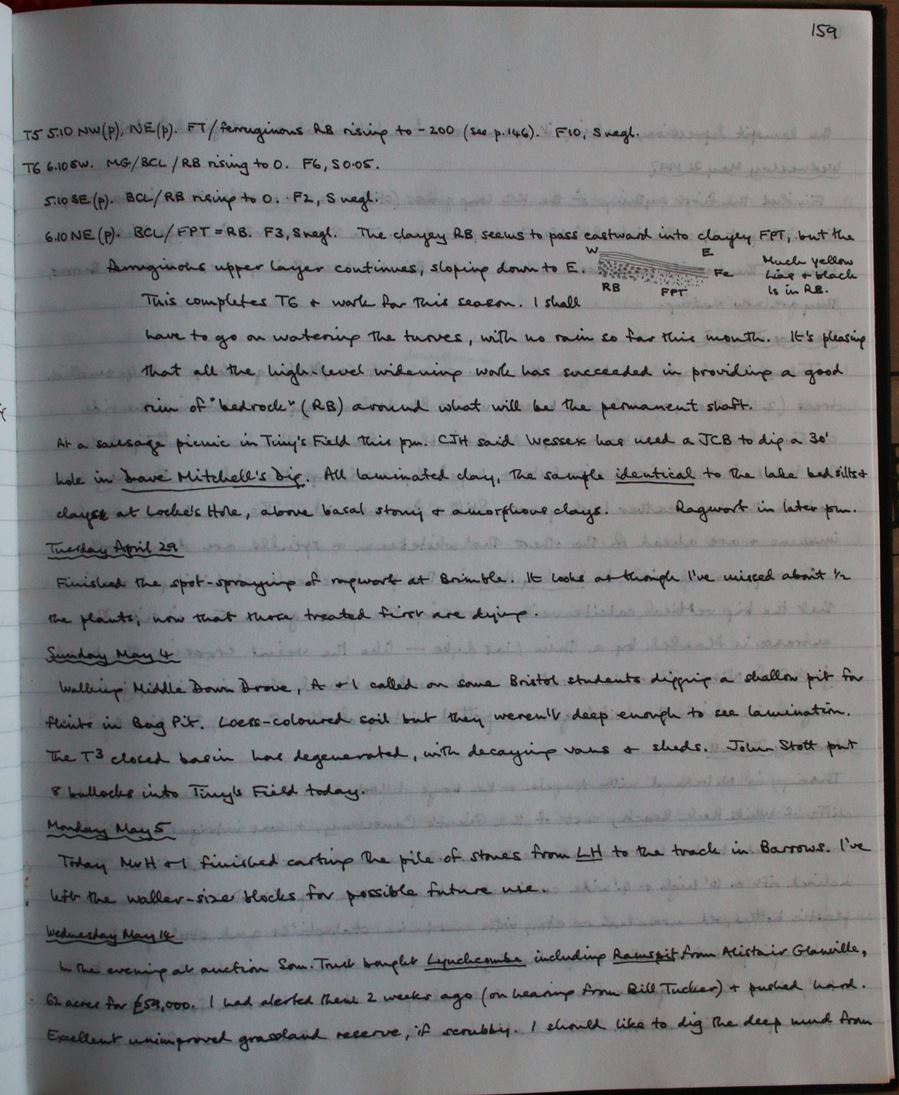 159
T5 5.10 NW(p), NE(p). FT/ferruginous RB rising to -200 (see p.146). F10, S negl.
T6 6.10 SW. MG/BCL/RB rising to 0. F6, S 0.05.
5.10 SE(p). BCL/RB rising to 0. F2, S negl.
6.10 NE(p). BCL/FPT = RB. F3, S negl. The clayey RB seems to pass eastward into clayey FPT, but the
ferruginous upper layer continues, sloping down to E. W E Fe RB FPT Much yellow
Lias & black
ls in RB.
This completes T6 & work for this season. I shall
have to go on watering the turves, with no rain so far this month. It's pleasing
that all the high-level widening work has succeeded in providing a good
rim of "bedrock" (RB) around what will be the permanent shaft.
At a sausage picnic in Tiny's Field this pm. CJH said Wessex has used a JCB to dig a 30'
hole in Dave Mitchell's Dig. All laminated clay, the sample identical to the lake bed silts &
clays at Locke's Hole, above basal stony & amorphous clays. Ragwort in later pm.
Tuesday April 29
Finished the spot-spraying of ragwort at Brimble. It looks as though I've missed about ½
the plants, now that those treated first are dying.
Sunday May 4
Walking Middle Down Drove, A & I called on some Bristol students digging a shallow pit for
flints in Bag Pit. Loess-coloured soil but they weren't deep enough to see lamination.
The T³ closed basin has degenerated, with decaying vans & sheds. John Stott put
8 bullocks into Tiny's Field today.
Monday May 5
Today MrH & I finished carting the pile of stones from LH to the track in Barrows. I've
left the waller-size blocks for possible future use.
Wednesday May 14
In the evening at auction Som. Trust bought Lynchcombe including Ramspit from Alistair Glanville,
62 acres for £59,000. I had alerted them 2 weeks ago (on hearing from Bill Tucker) & pushed hard.
Excellent unimproved grassland reserve, if scrubby. I should like to dig the deep mud from